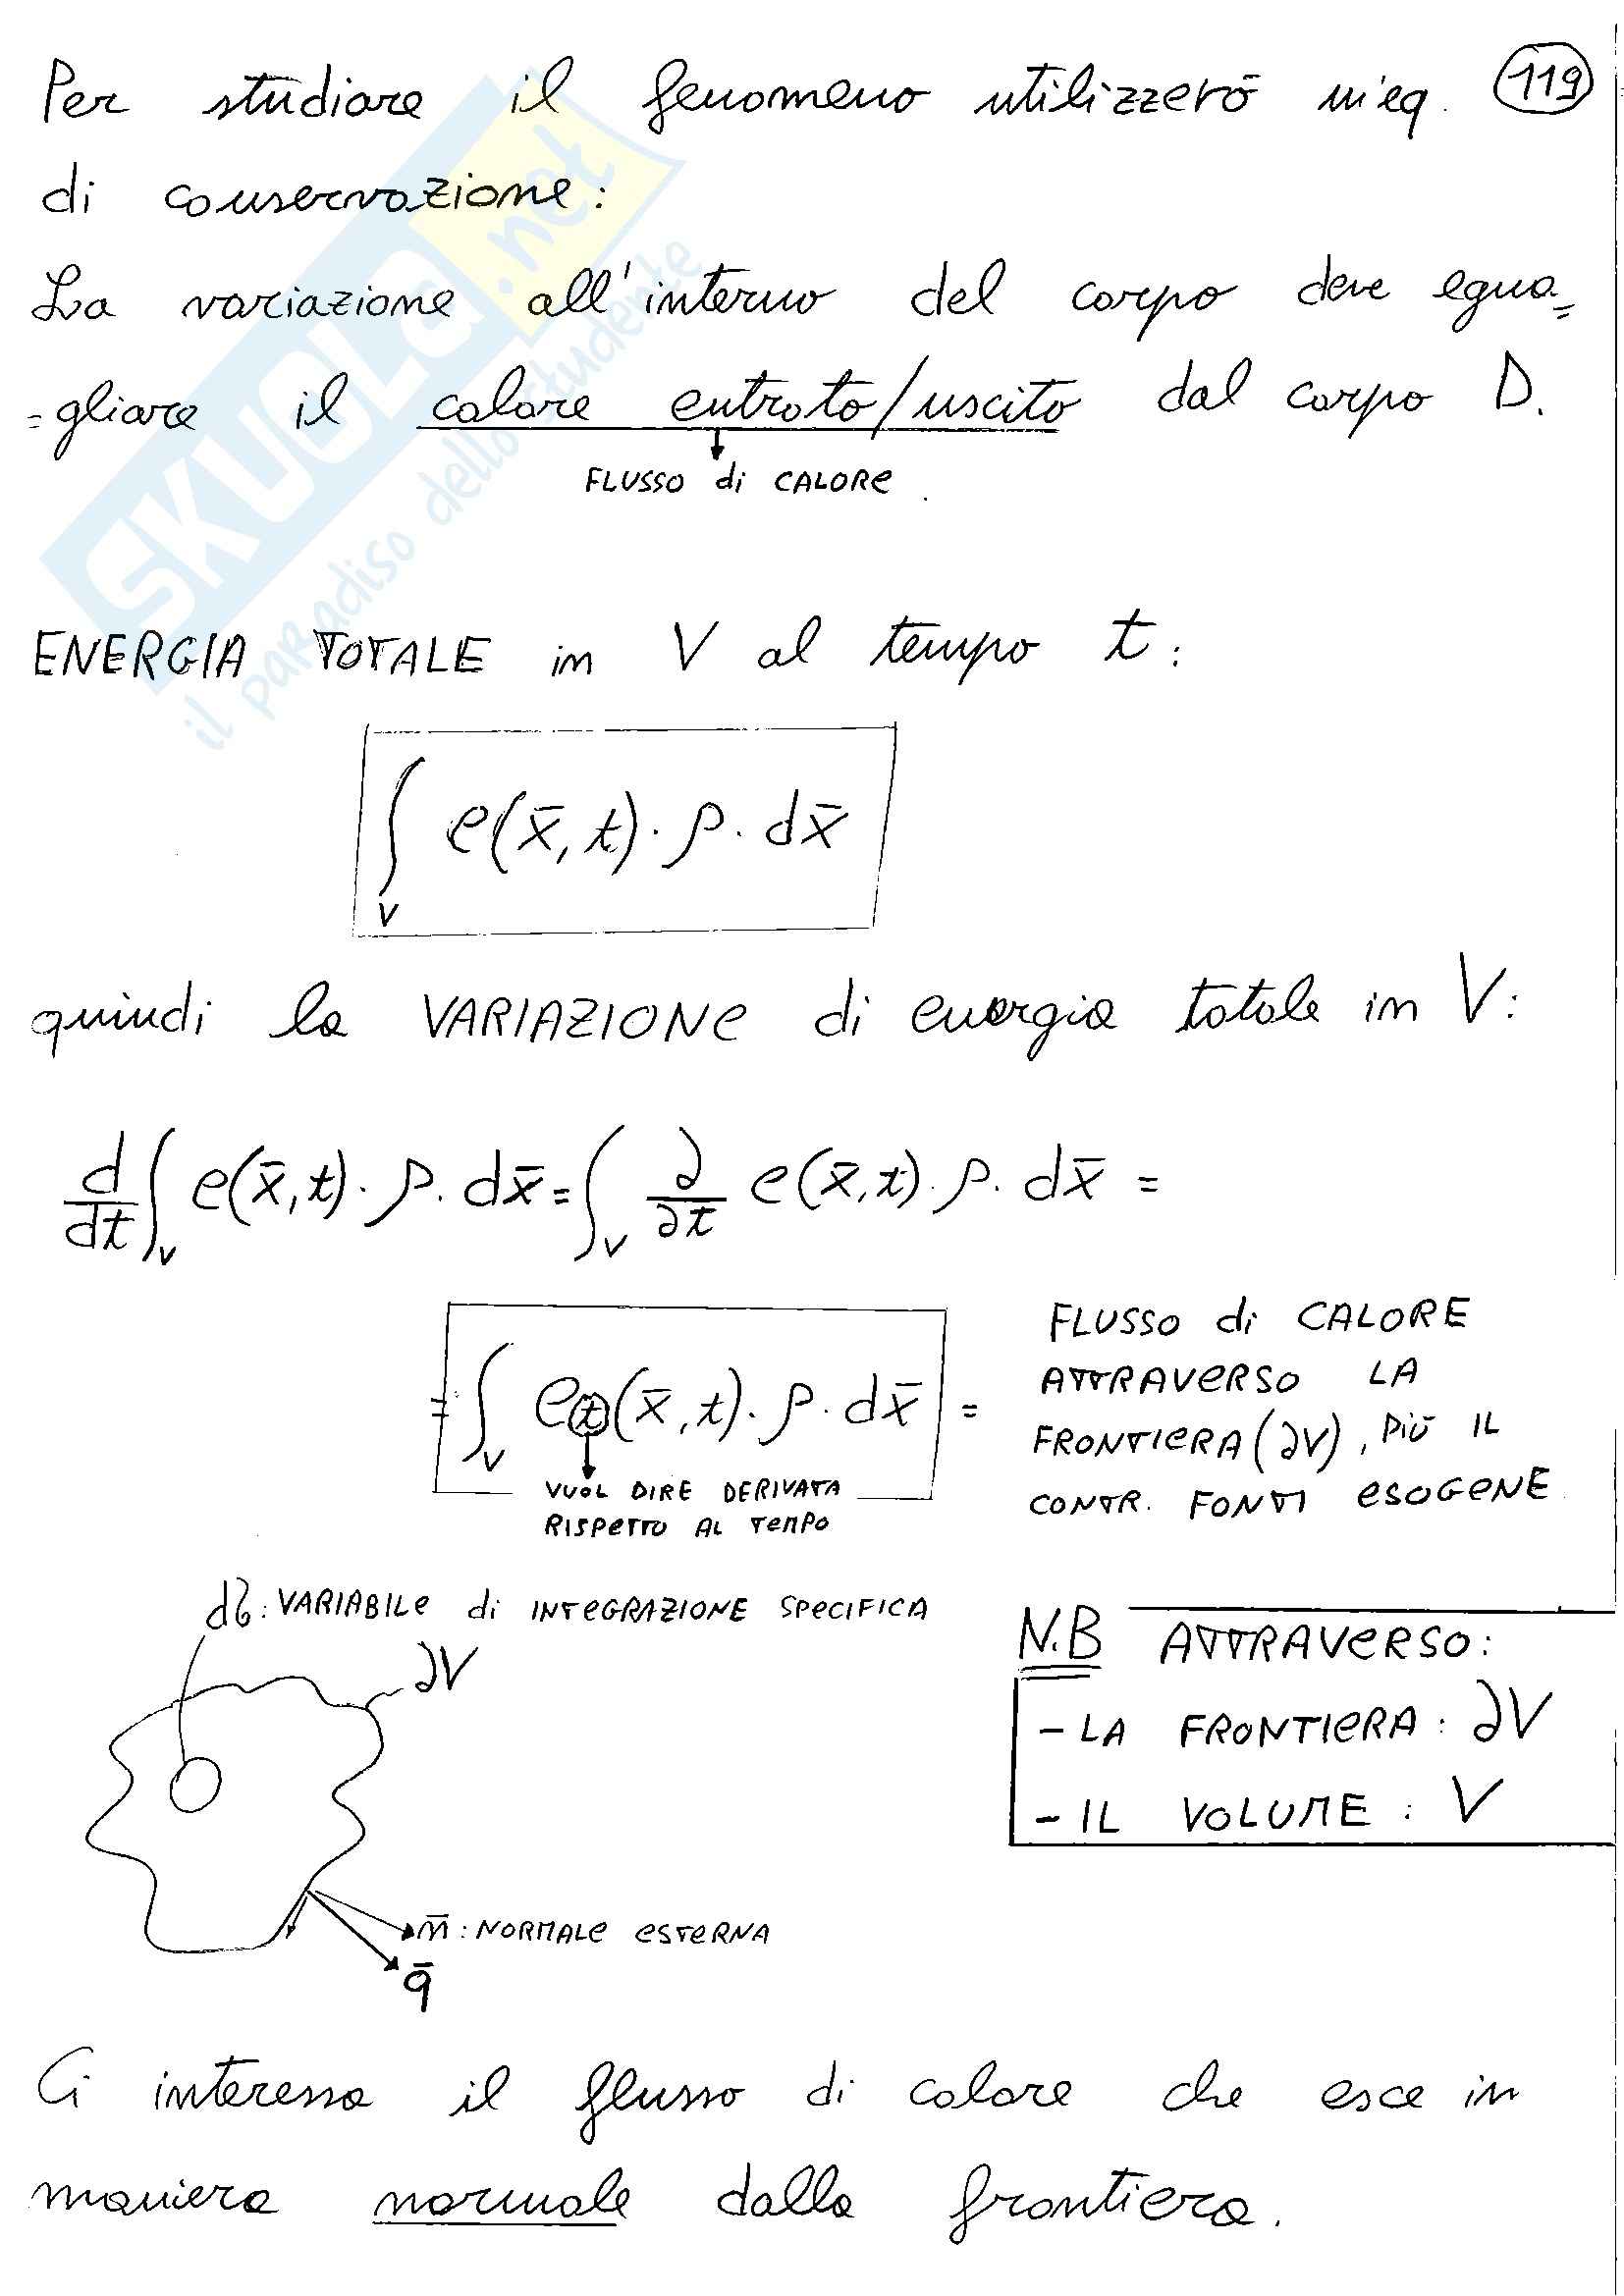 Per studiare il fenomeno utilizzerò un'eq. 119
di conservazione:
La variazione all'interno del corpo deve egua=
=gliare il calore entrato/uscito dal corpo D.
FLUSSO di CALORE.
ENERGIA TOTALE in V al tempo t:
∫_V e(x̄,t)·ρ·dx̄
quindi la VARIAZIONE di energia totale in V:
d/dt ∫_V e(x̄,t)·ρ·dx̄ = ∫_V ∂/∂t e(x̄,t)·ρ·dx̄ =
= ∫_V e_t(x̄,t)·ρ·dx̄ =
VUOL DIRE DERIVATA
RISPETTO AL TEMPO
FLUSSO di CALORE
ATTRAVERSO LA
FRONTIERA (∂V), PIÙ IL
CONTR. FONTI ESOGENE
dσ: VARIABILE di INTEGRAZIONE SPECIFICA
∂V
n̄: NORMALE ESTERNA
q̄
N.B ATTRAVERSO:
- LA FRONTIERA: ∂V
- IL VOLUME: V
Ci interessa il flusso di calore che esce in
maniera normale dalla frontiera.
SKUOLA.net
il paradiso dello studente